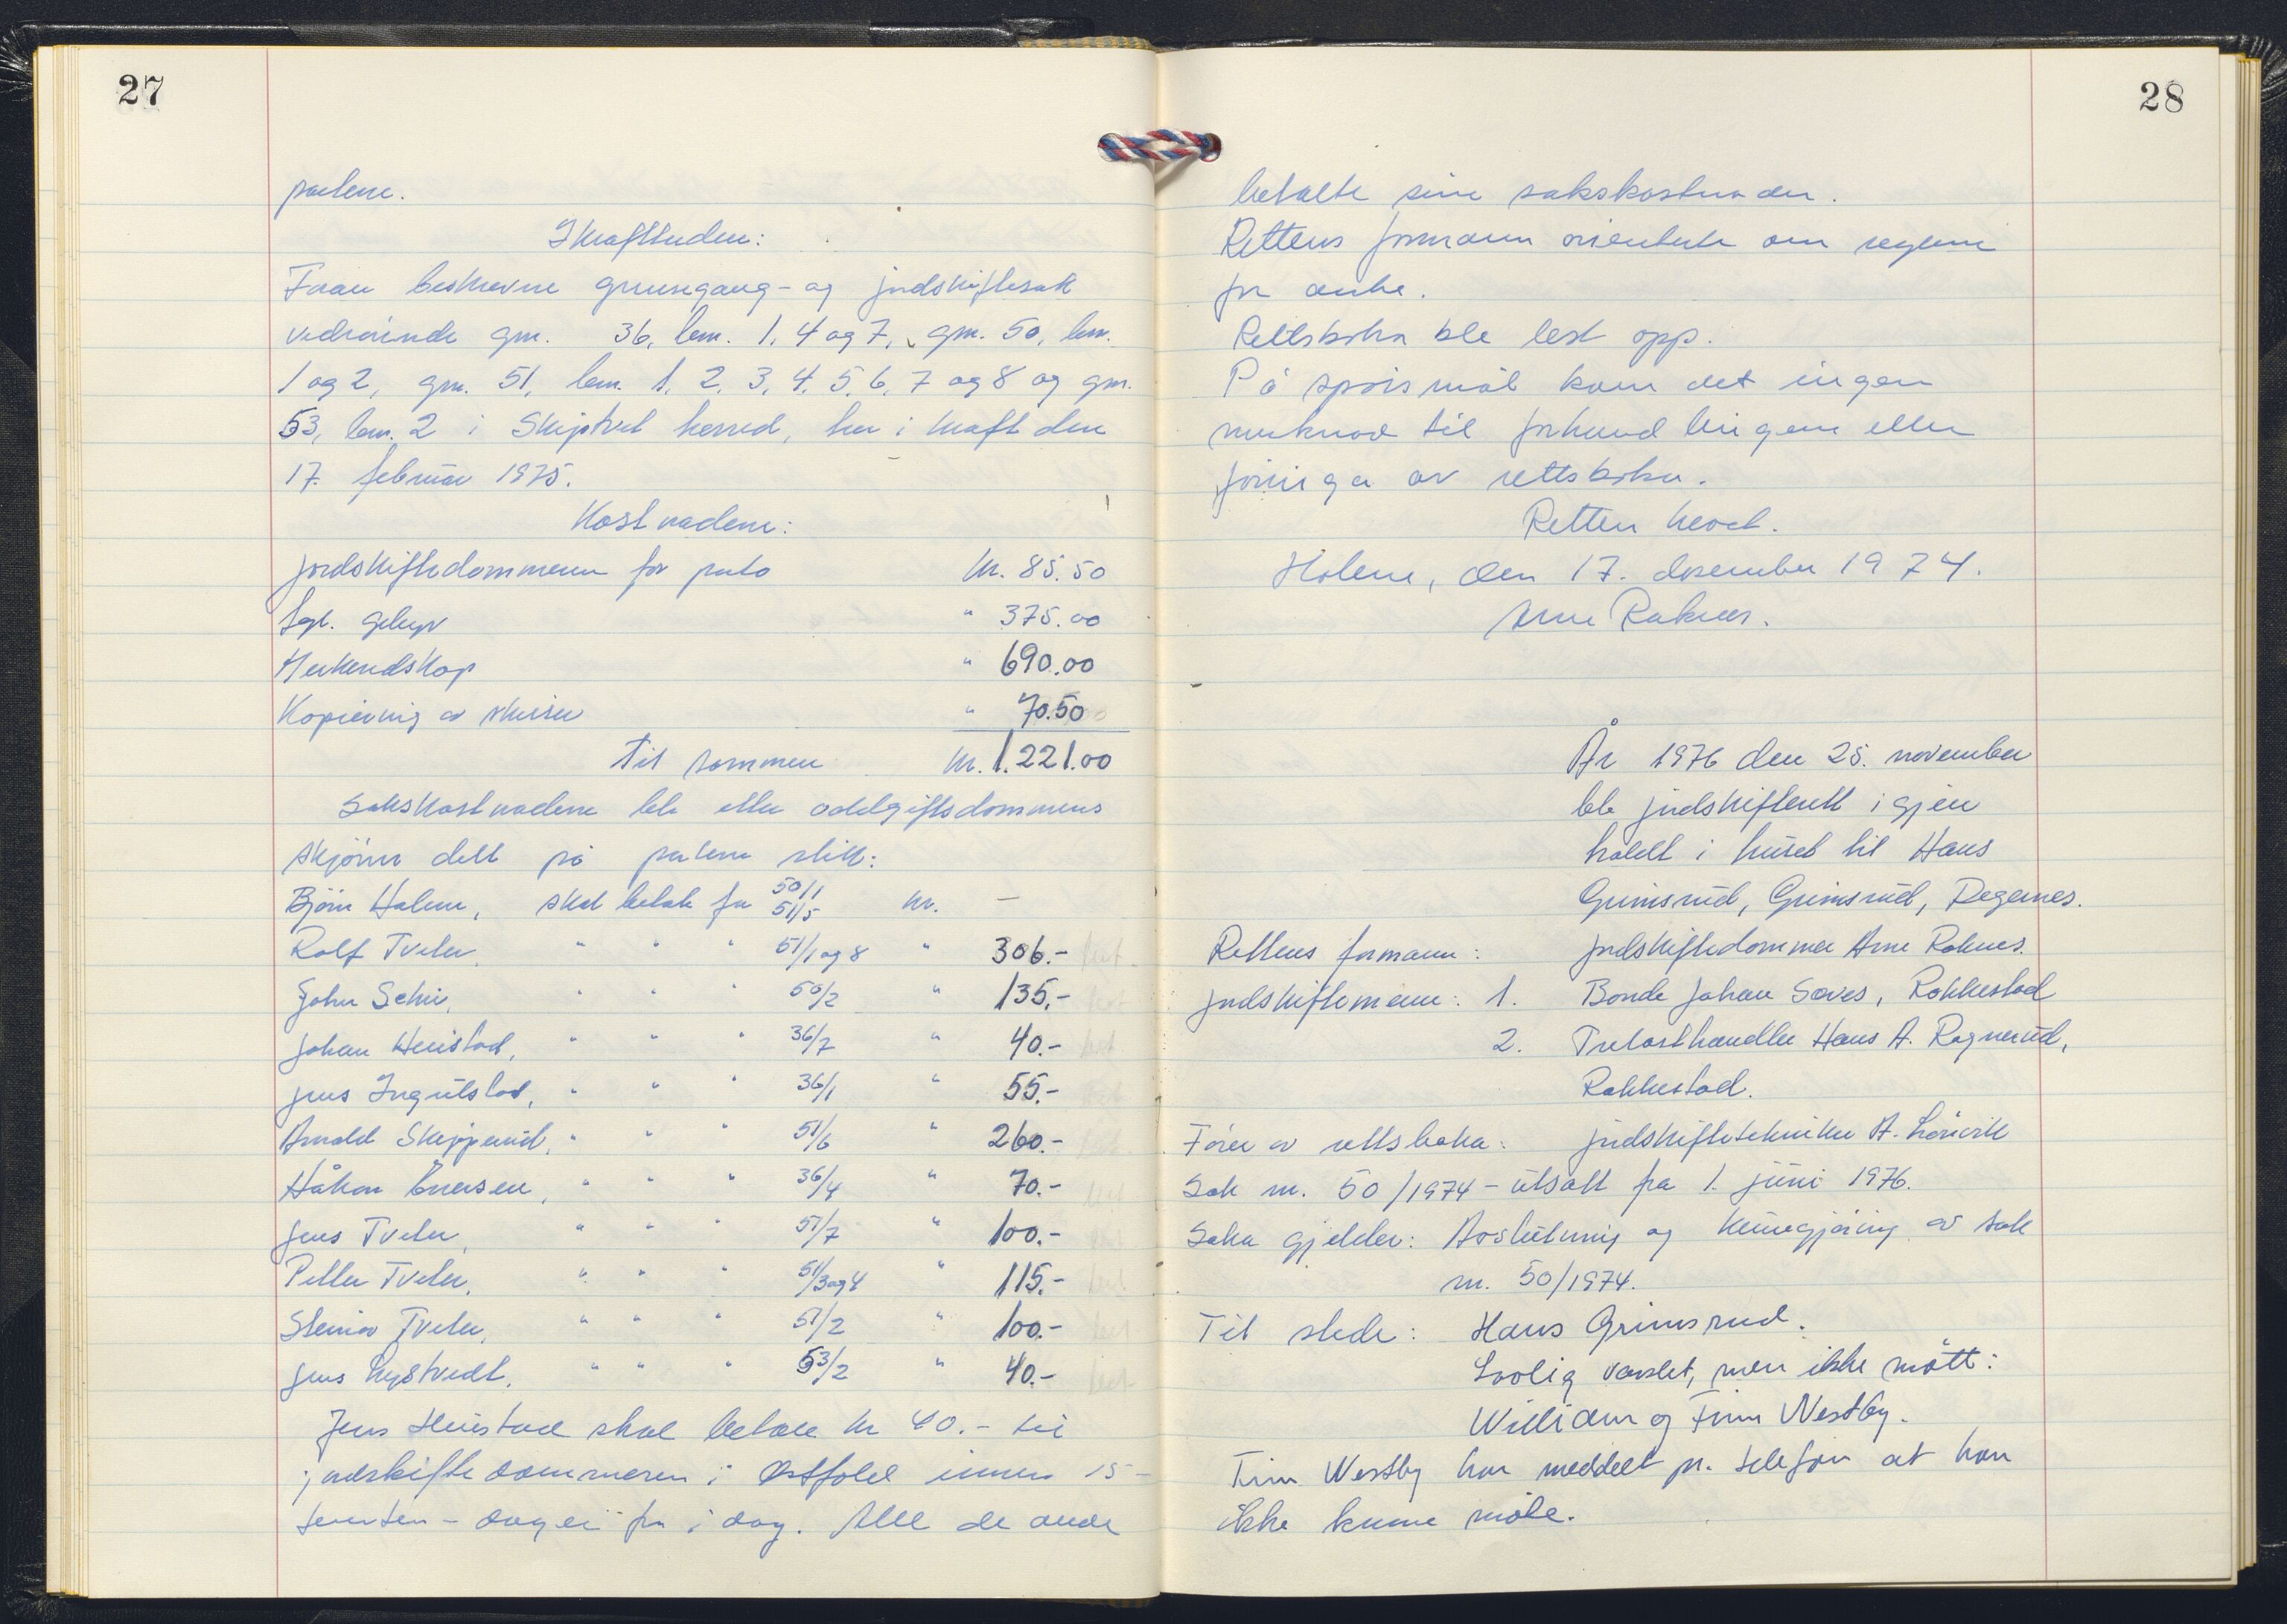 27
partene.
Ikrafttreden:
Foran beskrevne grensegang- og jordskiftesak
vedrørende gnr. 36, bnr. 1, 4 og 7, gnr. 50, bnr.
1 og 2, gnr. 51, bnr. 1, 2, 3, 4, 5, 6, 7 og 8 og gnr.
53, bnr. 2 i Skiptvet herred, trer i kraft den
17. februar 1975.
Kostnadene:
Jordskiftedommeren for porto kr. 85.50
Sgl. gebyr " 375.00
Merkeredskap " 690.00
Kopiering av skisser " 70.50
Til sammen kr. 1.221.00
Sakskostnadene ble etter oddelgiftsdommens
skjønn delt på partene slik:
Bjørn Holene, skal betale for 50/1 51/5 kr. —
Rolf Tveter, " " " 51/1 og 8 " 306.-
John Schie, " " " 50/2 " 135.-
Johan Heistad, " " " 36/7 " 40.-
Jens Ingulstad, " " " 36/1 " 55.-
Arnold Skipperud, " " " 51/6 " 260.-
Håkon Evensen, " " " 36/4 " 70.-
Jens Tveter, " " " 51/7 " 100.-
Petter Tveter, " " " 51/3 og 4 " 115.-
Steinar Tveter, " " " 51/2 " 100.-
Jens Nystvedt, " " " 53/2 " 40.-
Jens Heistad skal betale kr 40.- til
jordskiftedommeren i Østfold innen 15-
femten- dager fra i dag. Alle de andre
28
betalte sine sakskostnader.
Rettens formann orienterte om reglene
for anke.
Rettsboka ble lest opp.
På spørsmål kom det ingen
merknad til forhandlingene eller
føringa av rettsboka.
Retten hevet.
Holene, den 17. desember 1974.
Arne Raknes.
År 1976 den 25. november
ble jordskifterett igjen
holdt i huset til Hans
Grimsrud, Grimsrud, Degernes.
Rettens formann: Jordskiftedommer Arne Raknes.
Jordskiftemenn: 1. Bonde Johan Sæves, Rakkestad
2. Trelasthandler Hans A. Ragnerud,
Rakkestad.
Fører av rettsboka: jordskiftetekniker A. Lørvik
Sak nr. 50/1974 - utsatt fra 1. juni 1976.
Saka gjelder: Avslutning og kunngjøring av sak
nr. 50/1974.
Til stede: Hans Grimsrud.
Lovlig varslet, men ikke møtt:
William og Finn Westby.
Finn Westby har meddelt pr. telefon at han
ikke kunne møte.